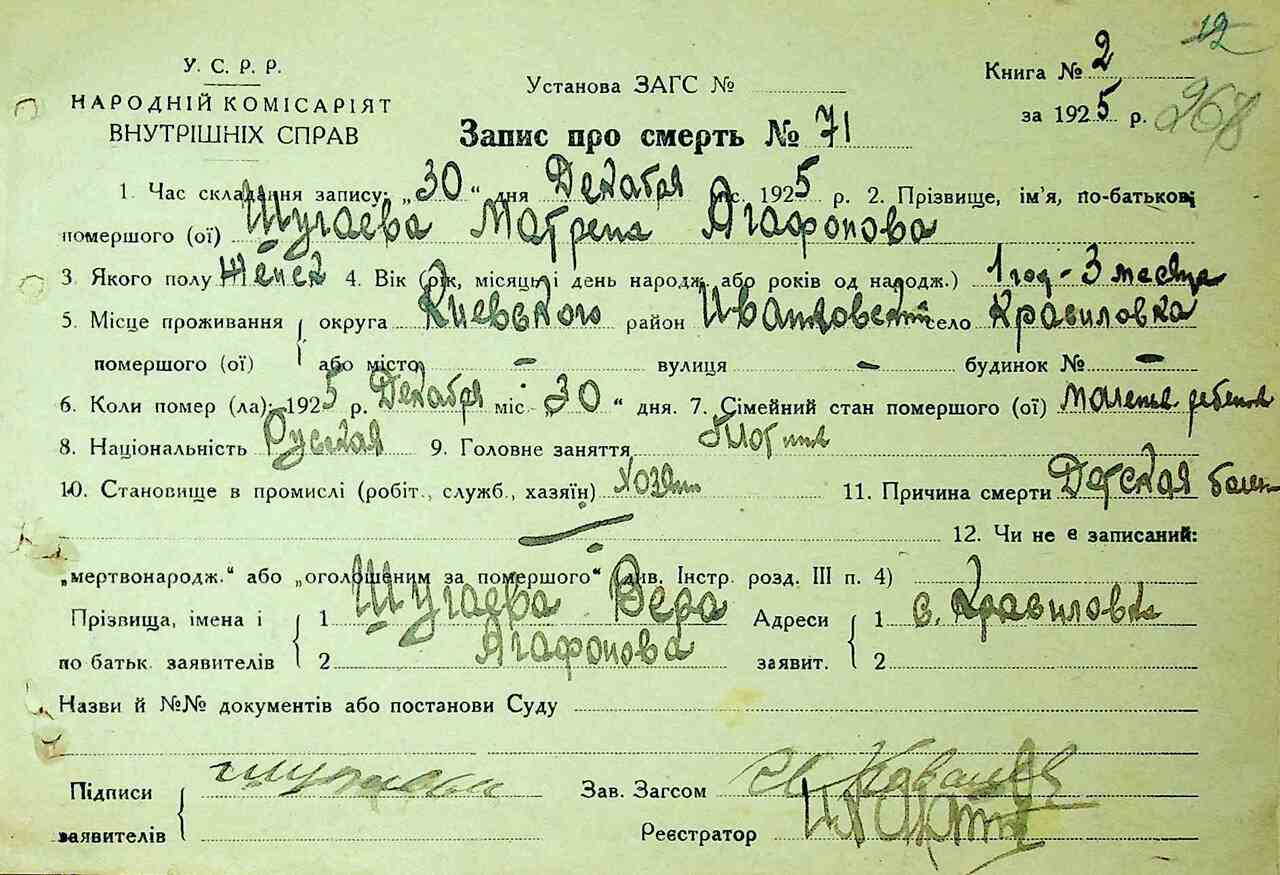 12
У. С. Р. Р.
НАРОДНІЙ КОМІСАРІЯТ
ВНУТРІШНІХ СПРАВ
Установа ЗАГС №
Книга № 2
за 1925 р. 268
Запис про смерть № 71
1. Час складання запису: „30“ дня Декабря міс. 1925 р. 2. Прізвище, ім'я, по-батькові
помершого (ої) Шугаева Матрена Агафонова
3. Якого полу Женск 4. Вік (рік, місяць і день народж. або років од народж.) 1 год - 3 месяца
5. Місце проживання округа Киевского район село Кравиловка
помершого (ої) або місто - вулиця - будинок № -
6. Коли помер (ла): 1925 р. Декабря міс. „30“ дня. 7. Сімейний стан помершого (ої)
8. Національність Руская 9. Головне заняття
10. Становище в промислі (робіт., служб., хазяїн) 11. Причина смерти Детская
12. Чи не є записаний:
„мертвонародж.“ або „оголошеним за помершого“ (див. Інстр. розд. III п. 4)
Прізвища, імена і 1 Шугаева Вера Адреси 1 с. Кравиловка
по батьк. заявителів 2 Агафонова заявит. 2
Назви й №№ документів або постанови Суду
Підписи Зав. Загсом
заявителів Реєстратор